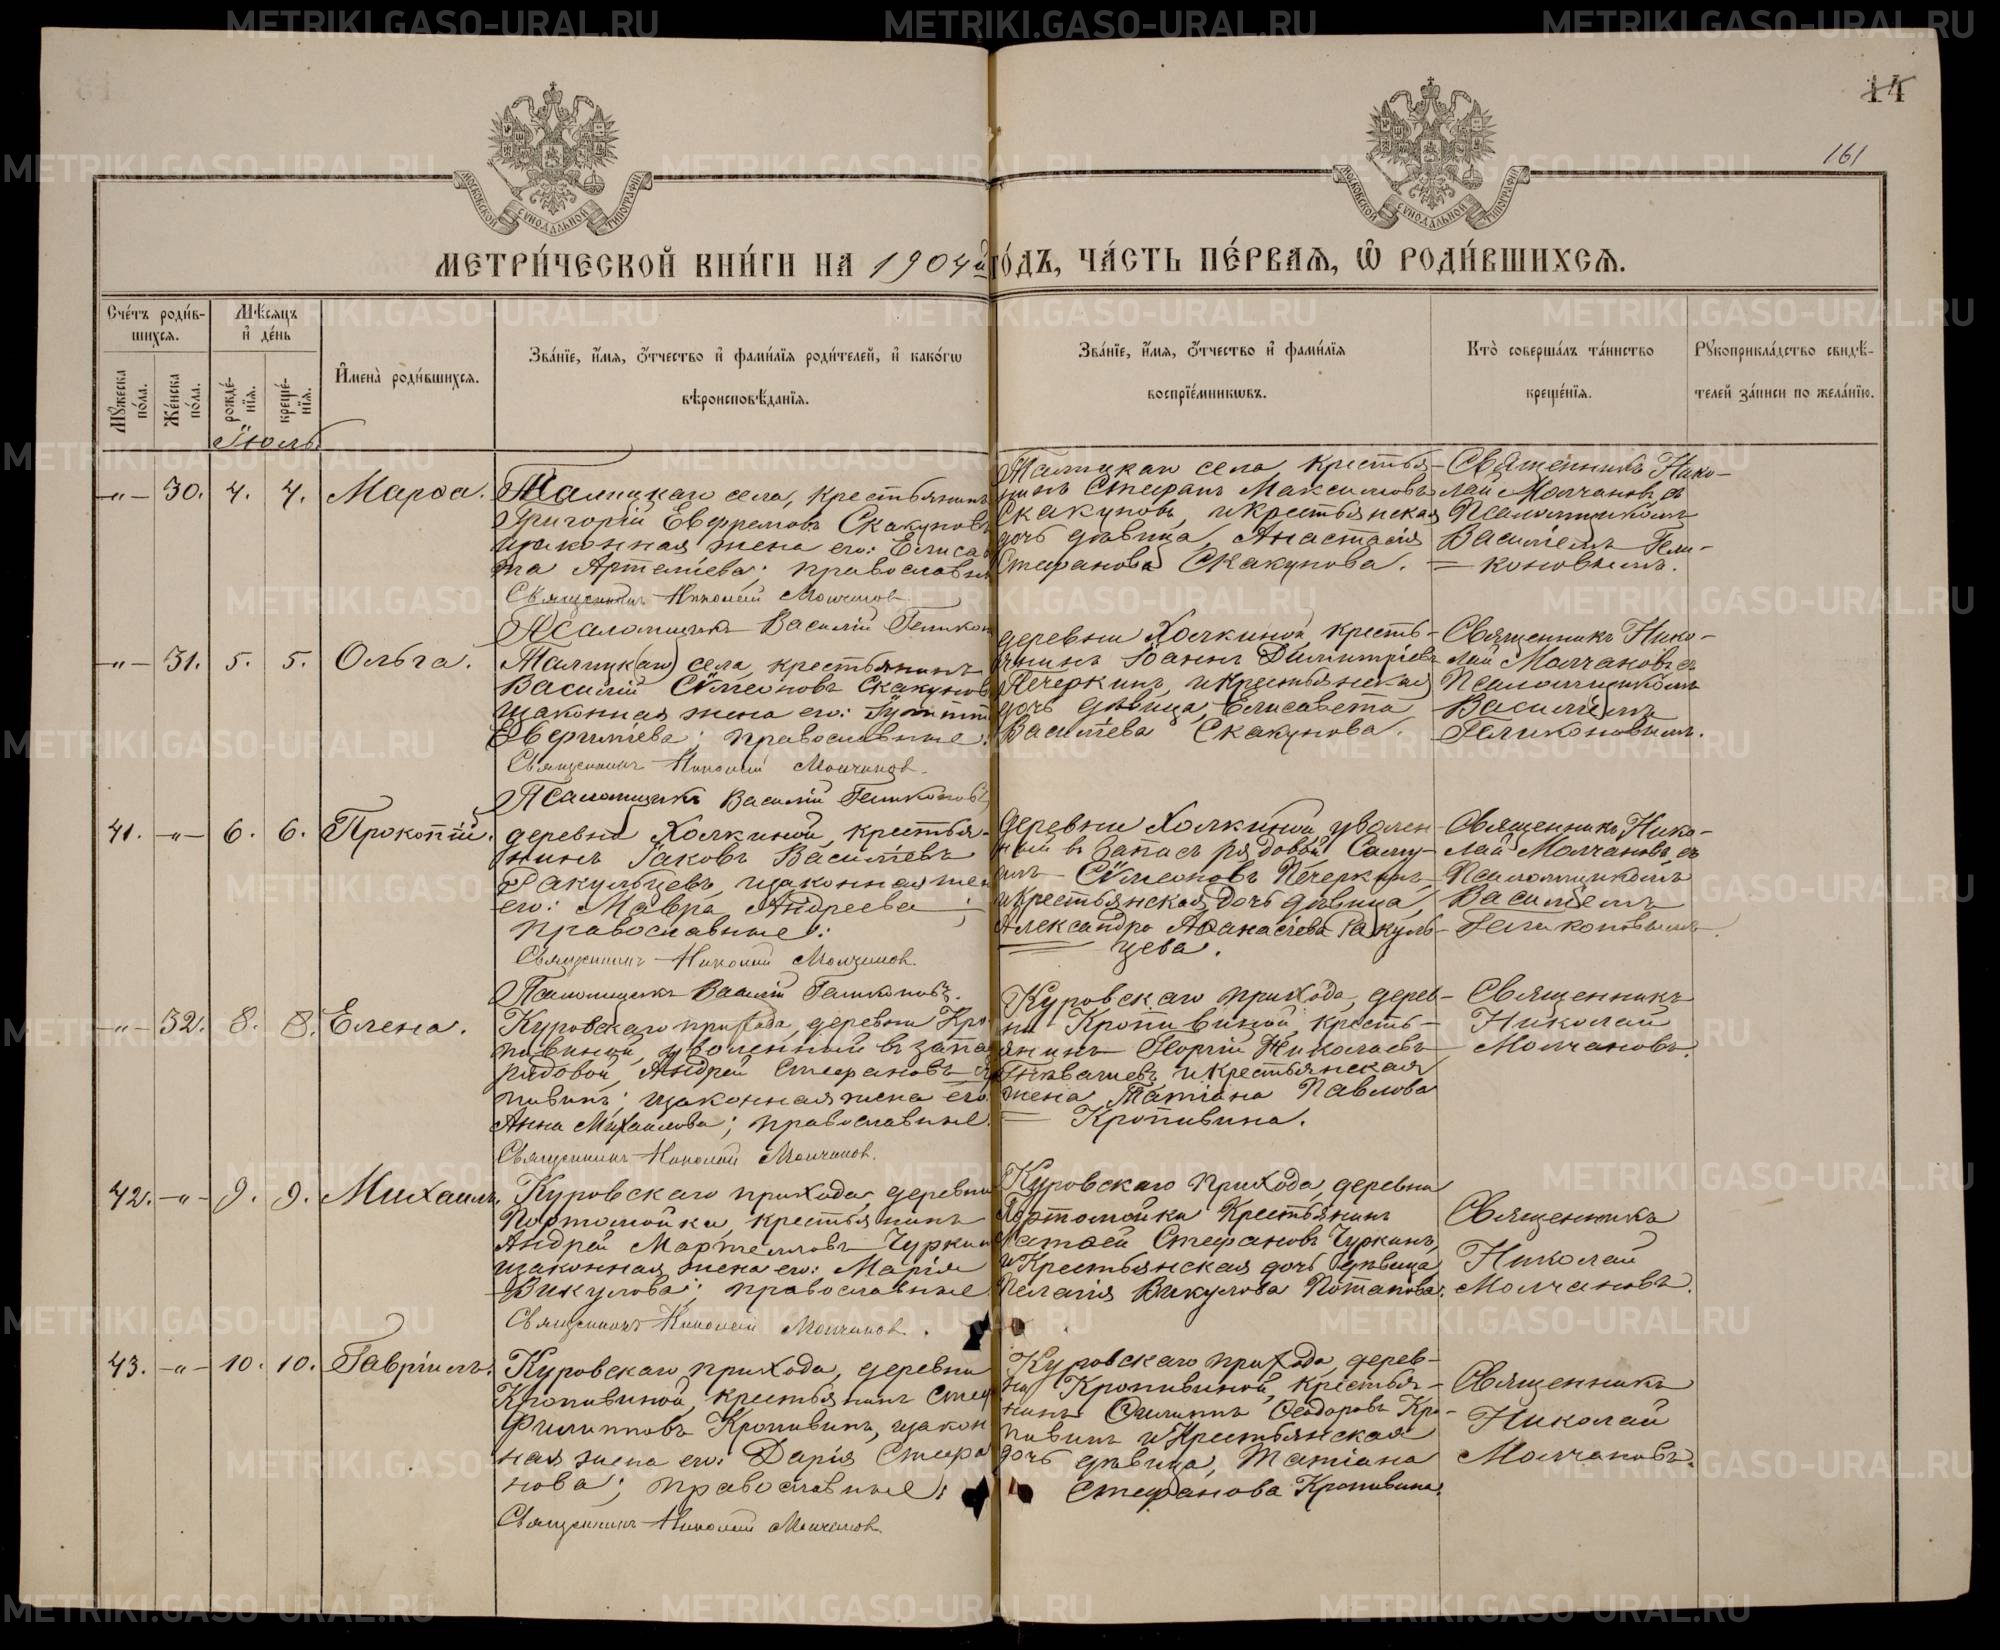 14
161
МОСКОВСКОЙ СѴНОДАЛЬНОЙ ТИПОГРАФІИ
МОСКОВСКОЙ СѴНОДАЛЬНОЙ ТИПОГРАФІИ
МЕТРИ́ЧЕСКОЙ КНИ́ГИ НА 1904й ГО́ДЪ, ЧА́СТЬ ПЕ́РВАЯ, Ѡ РОДИ́ВШИХСЯ.
Сче́тъ роди́в-
шихся.
Мѣ́сяцъ
и де́нь
Мꙋ́жеска по́ла.
Же́нска по́ла.
рожде́-
нїя.
креще́-
нїя.
И҆мена̀ роди́вшихся.
Зва́нїе, и҆́мя, ѻ҆́тчество и҆ фами́лїя роди́телей, и҆ како́гѡ
вѣроисповѣ́данїя.
Зва́нїе, и҆́мя, ѻ҆́тчество и҆ фами́лїя
воспрїе́мникѡвъ.
Кто̀ соверша́лъ та́инство
креще́нїя.
Рꙋкоприкла́дство свидѣ́-
телей за́писи по жела́нїю.
Іюль
-„- 30. 4. 4. Марѳа.
Талицкаго села, крестьянинъ
Григорій Евфремовъ Скакуновъ
изаконная жена его: Елиса
та Артеміева; православн
Священникъ Николай Молчановъ
Псаломщикъ Василій Гелико
Талицкаго села, крестья-
нинъ Стефанъ Максимовъ
Скакуновъ, и крестьянская
дочь дѣвица, Анастасія
Стефанова Скакунова.
Священникъ Нико-
лай Молчановъ, съ
Псаломщикомъ
Василіемъ Гели-
коновымъ.
-„- 31. 5. 5. Ольга.
Талицк(аго) села, крестьянинъ
Василій Сѵмеоновъ Скакуновъ
изаконная жена его:
православные.
Священникъ Николай Молчановъ.
Псаломщикъ Василій Геликоновъ
деревни Холкиной, кресть-
янинъ Іоаннъ Димитріевъ
Печеркинъ, и крестьянская
дочь дѣвица, Елисавета
Васильева Скакунова.
Священникъ Нико-
лай Молчановъ съ
Псаломщикомъ
Василіемъ
Геликоновымъ.
41. -„- 6. 6. Прокопій.
деревни Холкиной, крестья-
нинъ Іаковъ Васильевъ
Ракульцевъ, изаконная жен
его: Мавра Андреева;
православные:
Священникъ Николай Молчановъ.
Псаломщикъ Василій Геликоновъ.
деревни Холкиной, уволен-
ный въ запасъ рядовой Саму-
илъ Сѵмеоновъ Печеркинъ,
и Крестьянская дочь дѣвица,
Александра Аѳанасіева Ракуль-
цева.
Священникъ, Нико-
лай Молчановъ, съ
Псаломщикомъ
Василіемъ
Геликоновымъ.
-„- 32. 8. 8. Елена.
Куровскаго прихода, деревни Кро
пивиной, уволенный въ запа
рядовой, Андрей Стефановъ
пивинъ; изаконная жена его
Анна Михаилова; православные.
Священникъ Николай Молчановъ.
Куровскаго прихода, дерев-
ни Кропивиной, кресть-
янинъ Георгій Николаевъ
и Крестьянская
жена Татіана Павлова
Кропивина.
Священникъ
Николай
Молчановъ.
42. -„- 9. 9. Михаилъ.
Куровскаго прихода, деревни
Портомойки, крестьянинъ
Андрей Чуркин
изаконная жена его: Марія
Викулова; православные
Священникъ Николай Молчановъ.
Куровскаго прихода, деревни
Портомойки Крестьянинъ
Матѳей Стефановъ Чуркинъ,
и Крестьянская дочь дѣвица
Пелагія Викулова Потапова.
Священникъ
Николай
Молчановъ.
43. -„- 10. 10. Гавріилъ.
Куровскаго прихода, деревни
Кропивиной, крестьянинъ Стеф
Филипповъ Кропивинъ, изакон
ная жена его: Дарія Стефа
нова; православные:
Священникъ Николай Молчановъ.
Куровскаго прихода, дерев-
ни Кропивиной, крестья-
нинъ Филиппъ Ѳеодоровъ Кро-
пивинъ и Крестьянская
дочь дѣвица, Татіана
Стефанова Кропивина.
Священникъ
Николай
Молчановъ.
METRIKI.GASO-URAL.RU